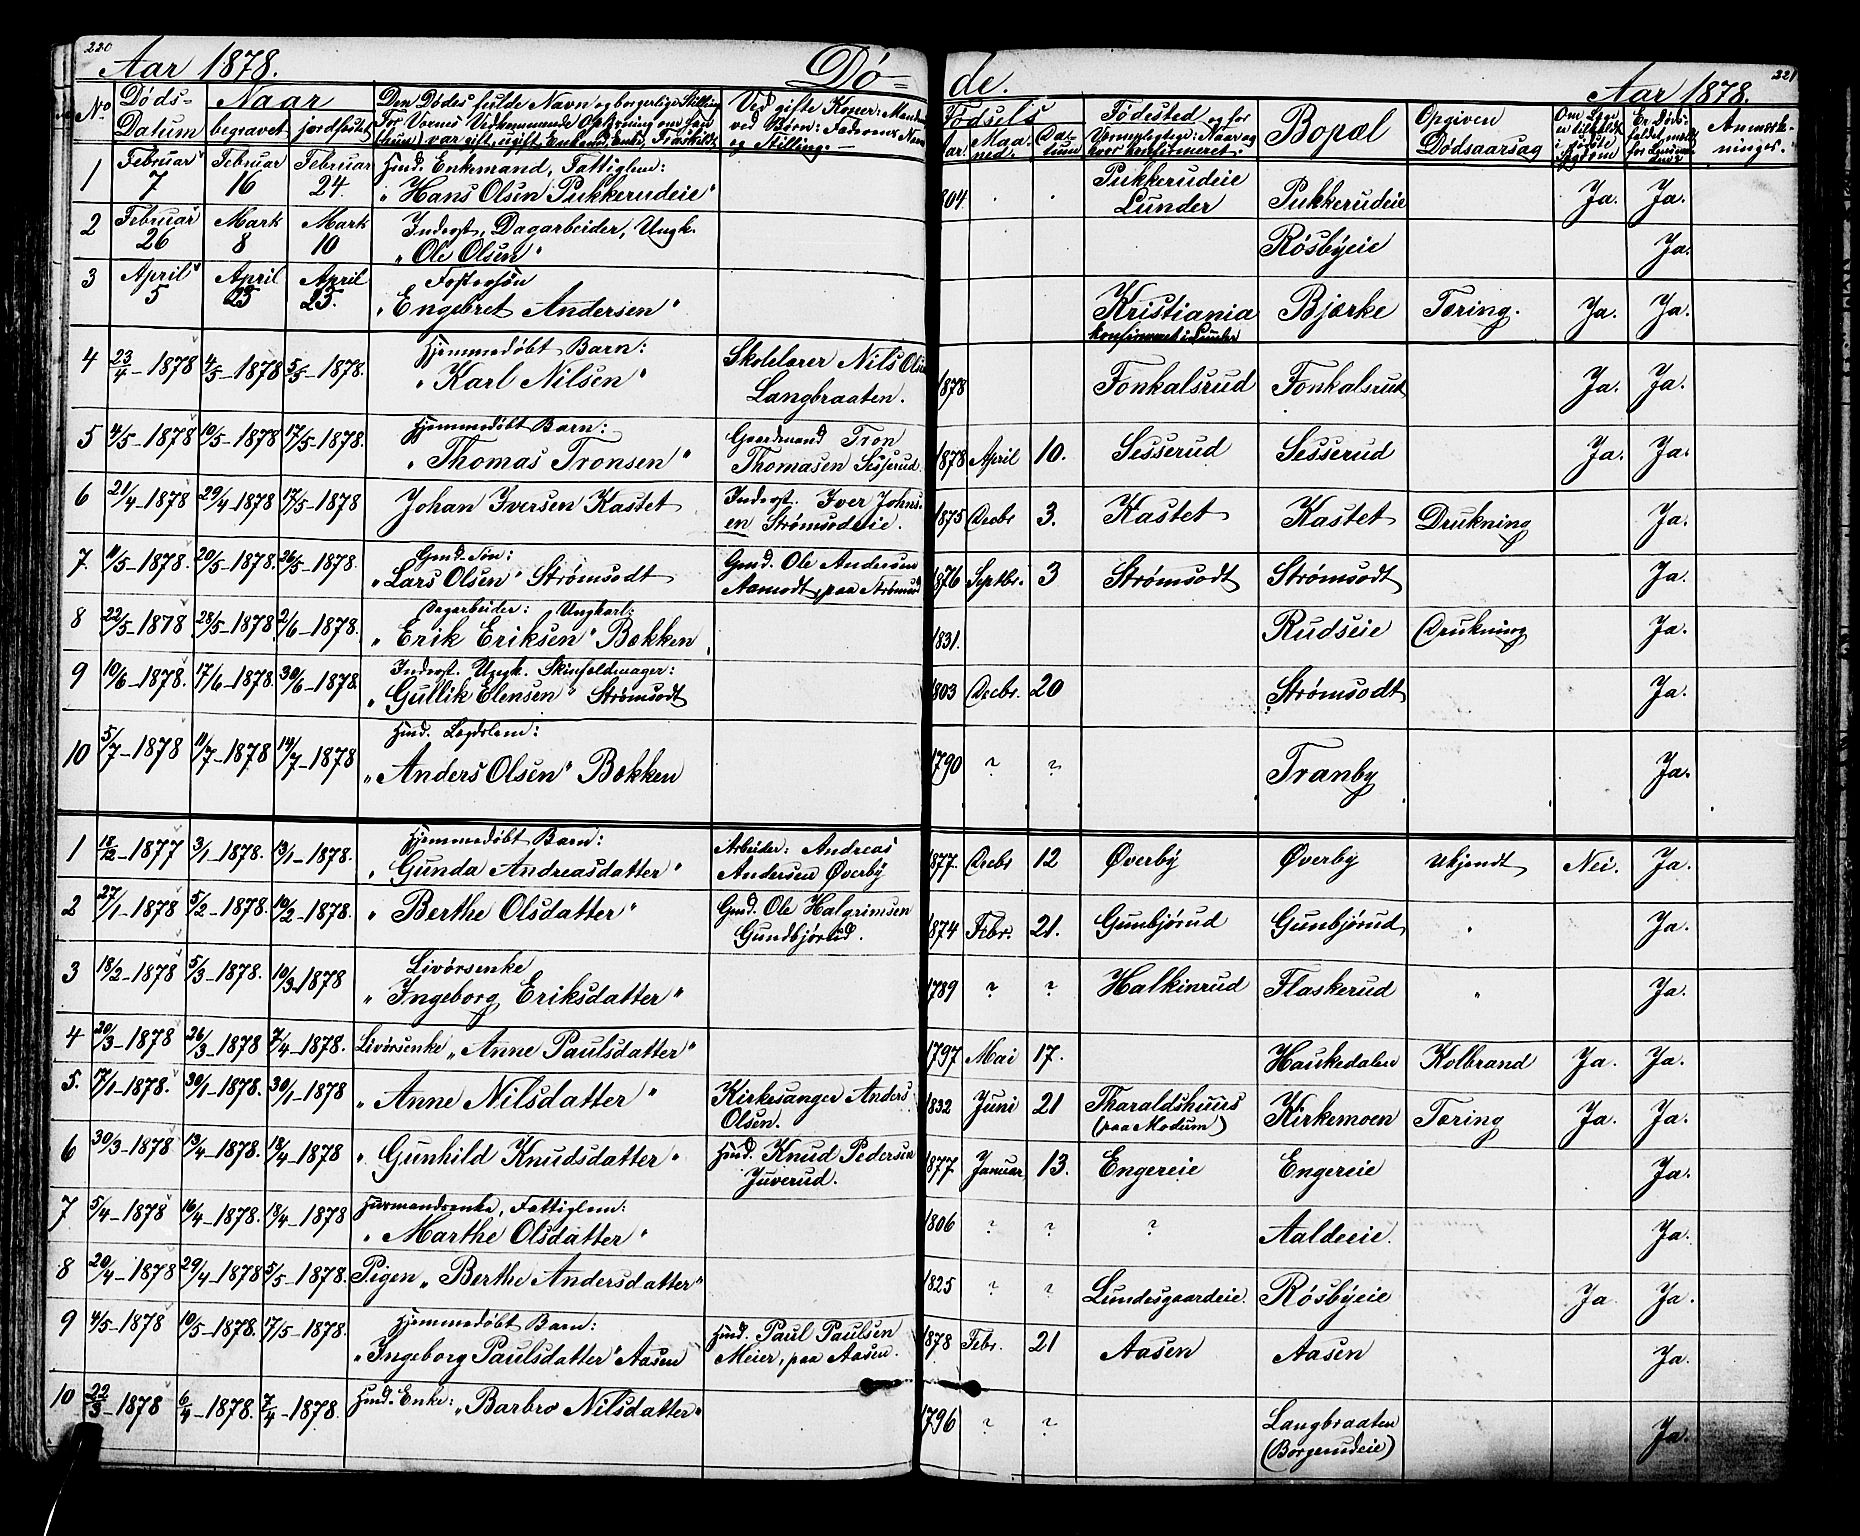 220
Aar 1878.
Dø-
No
Døds-
Datum
Naar
begravet
jordfæstet
Den Dødes fulde Navn og borgerlige Stilling
For Voxnes Vedkommende Oplysning om han
(hun) var gift, ugift, Enkemd, Enke, Fraskilt
Ved gifte Koner: Mandens
ved Børn: Faderens Navn
og Stilling.
1 Februar 7 Februar 16 Februar 24 Husmd. Enkemand, Fattiglem:
"Hans Olsen Pukkerudeie"
2 Februar 26 Marts 8 Marts 10 Inderst, Dagarbeider, Ungk.
"Ole Olsen"
3 April 5 April 23 April 23. Fostersøn
"Engebret Andersen"
4 23/4-1878 4/5-1878 5/5-1878. Hjemmedøbt Barn: Skolelærer Nils Olsen
"Karl Nilsen" Langbraaten.
5 4/5-1878 10/5-1878 17/5-1878. Hjemmedøbt Barn: Gaardmand Tron
"Thomas Tronsen" Thomasen Sesserud.
6 21/4-1878 29/4-1878 17/5-1878 Johan Iversen Kastet Inderst. Iver Johns-
en Strømsodeie.
7. 11/5-1878. 20/5-1878. 26/5-1878. Gmd. Søn: Gmd. Ole Andersen
"Lars Olsen" Strømsodt Aamodt, paa Strømsod
8 22/5-1878 28/5-1878 2/6-1878. Dagarbeider: Ungkarl:
"Erik Eriksen" Bækken
9 10/6-1878. 17/6-1878. 30/6-1878. Inderst. Ungk. Skinfeldmager:
"Gullik Elensen" Strømsodt
10 5/7-1878 11/7-1878 14/7-1878 Husd. Lægdslem:
"Anders Olsen" Bækken
1 18/12-1877 3/1-1878. 13/1-1878. Hjemmedøbt Barn: Arbeider: Andreas
"Gunda Andreasdatter" Andersen Øverby
2 27/1-1878 5/2-1878. 10/2-1878. "Berthe Olsdatter" Gmd. Ole Halgrimsen
Gundbjørud.
3 18/2-1878 5/3-1878. 10/3-1878 Livørsenke
"Ingeborg Eriksdatter"
4 20/3-1878 26/3-1878 7/4-1878. Livørsenke "Anne Paulsdatter"
5. 17/1-1878. 30/1-1878. 30/1-1878 "Anne Nilsdatter" Kirkesanger Anders
Olsen.
6 30/3-1878 13/4-1878. 18/4-1878 "Gunhild Knudsdatter" Husd. Knud Pedersen
Juverud.
7 5/4-1878 16/4-1878. 18/4-1878 Husmandsenke, Fattiglem:
"Marthe Olsdatter"
8 20/4-1878 29/4-1878 5/5-1878. Pigen "Berthe Andersdatter"
9 4/5-1878 10/5-1878. 17/5-1878. Hjemmedøbt Barn: Husd. Paul Paulsen
"Ingeborg Paulsdatter" Aasen Meier, paa Aasen.
10 22/3-1878 6/4-1878. 7/4-1878. Husd. Enke: "Barbro Nilsdatter"
de.
Aar 1878.
221
Fødsels
Aar. Maa-
ned. Da-
tum
Fødested og for
Vennepligtige: Naar og
hvor konfirmeret.
Bopæl
Opgiven
Dødsaarsag
Om Læge
er tilkaldt
i sidste
Sygdom
Er Døds-
faldet meldt
for Lensman-
den?
Anmærk-
ninger.
1804 . . Pukkerudeie
Lunder Pukkerudeie Ja. Ja.
Røsbyeie Ja.
Kristiania
konfirmeret i Lunder Bjørke Tæring. Ja. Ja.
1878 Fonkalsrud Fonkalsrud Ja. Ja.
1878 April 10. Sesserud Sesserud Ja. Ja.
1875 Decbr 3. Kastet Kastet Drukning Ja.
1876 Septbr. 3 Strømsodt Strømsodt Ja.
1831. Rudseie Drukning Ja.
1803 Decbr. 20 Strømsodt Ja.
1790 ? ? Tranby Ja.
1877. Decbr 12 Øverby Øverby Ukjendt Nei. Ja.
1874 Febr. 21. Gunbjørud Gunbjørud " Ja.
1789 ? ? Halkinrud Flaskerud " Ja.
1797 Mai 17. Haukedalen Kolbrand Ja. Ja.
1832 Juni 21 Tharaldshuus
(paa Modum) Kirkemoen Tæring Ja. Ja.
1877 Januar 13. Engereie Engereie Ja.
1806 ? ? ? Aaldeeie. Ja.
1825 ? ? Lundesgaardeie. Røsbyeie Ja Ja.
1878 Febr. 21 Aasen Aasen Ja.
1796 ? ? Langbraaten
(Borgerudeie) Ja.